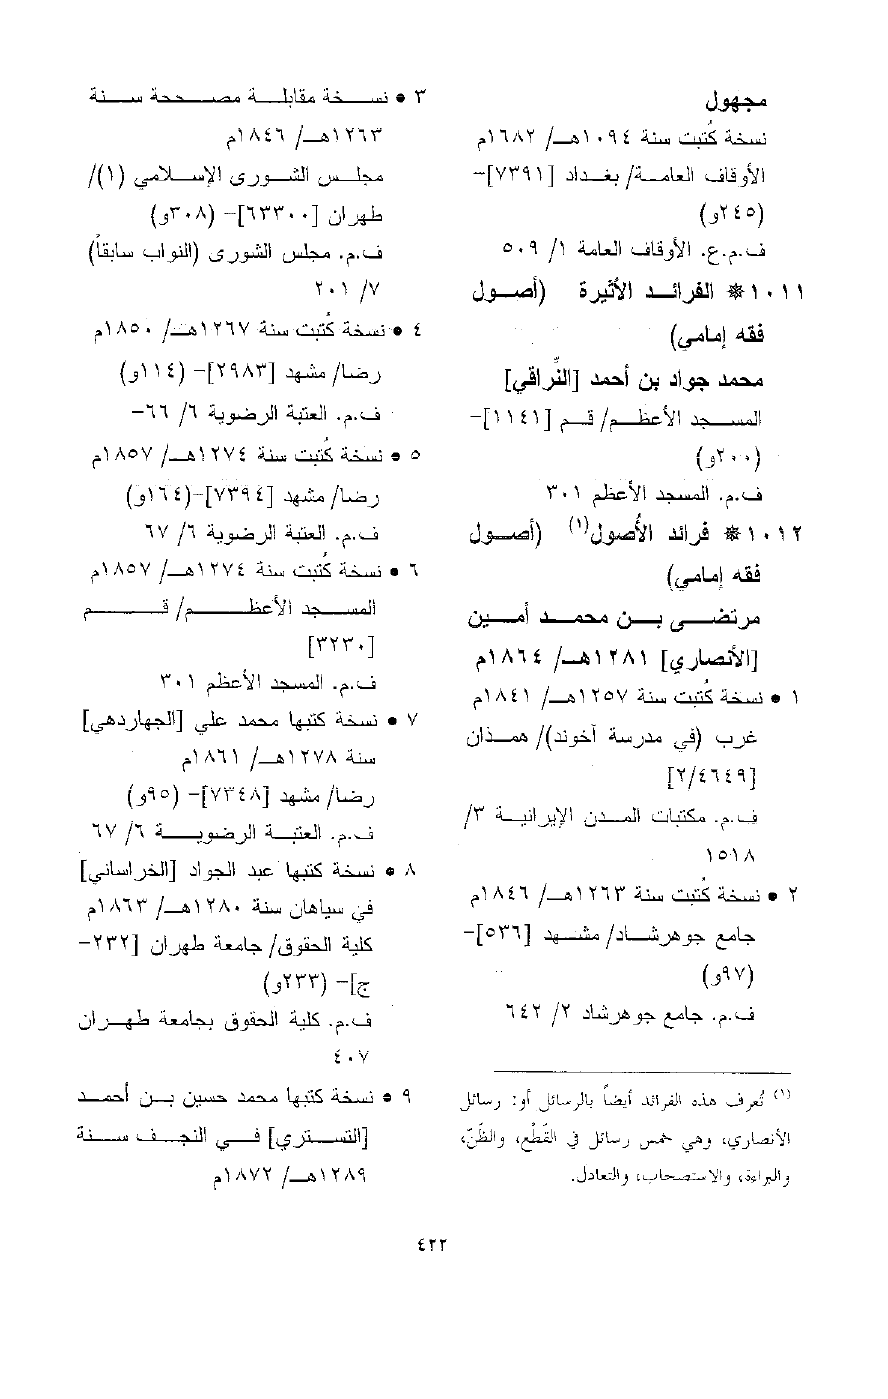 مجهول
نسخة كُتبت سنة ١٠٩٤هـ/ ١٦٨٢م
الأوقاف العامة/ بغداد [٧٣٩١]-
(٢٤٥و)
ف.م.ع. الأوقاف العامة ١/ ٥٠٩
١٠١١ ❋ الفرائد الأثيرة (أصول
فقه إمامي)
محمد جواد بن أحمد [النَّراقي]
المسجد الأعظم/ قم [١١٤١]-
(٢٠٠و)
ف.م. المسجد الأعظم ٣٠١
١٠١٢ ❋ فرائد الأُصول(١) (أصول
فقه إمامي)
مرتضى بن محمد أمين
[الأنصاري] ١٢٨١هـ/ ١٨٦٤م
١ • نسخة كُتبت سنة ١٢٥٧هـ/ ١٨٤١م
غرب (في مدرسة آخوند)/ همذان
[٢/٤٦٤٩]
ف.م. مكتبات المدن الإيرانية ٣/
١٥١٨
٢ • نسخة كُتبت سنة ١٢٦٣هـ/ ١٨٤٦م
جامع جوهرشاد/ مشهد [٥٣٦]-
(٩٧و)
ف.م. جامع جوهرشاد ٢/ ٦٤٢
(١) تُعرف هذه الفرائد أيضاً بالرسائل أو: رسائل
الأنصاري، وهي خمس رسائل في القَطْع، والظَّنّ،
والبراءة، والاستصحاب، والتعادل.
٣ • نسخة مقابلة مصححة سنة
١٢٦٣هـ/ ١٨٤٦م
مجلس الشورى الإسلامي (١)/
طهران [٦٣٣٠٠]- (٣٠٨و)
ف.م. مجلس الشورى (النواب سابقاً)
٧/ ٢٠١
٤ • نسخة كُتبت سنة ١٢٦٧هـ/ ١٨٥٠م
رضا/ مشهد [٢٩٨٣]- (١١٤و)
ف.م. العتبة الرضوية ٦/ ٦٦-
٥ • نسخة كُتبت سنة ١٢٧٤هـ/ ١٨٥٧م
رضا/ مشهد [٧٣٩٤]-(١٦٤و)
ف.م. العتبة الرضوية ٦/ ٦٧
٦ • نسخة كُتبت سنة ١٢٧٤هـ/ ١٨٥٧م
المسجد الأعظم/ قم
[٣٢٣٠]
ف.م. المسجد الأعظم ٣٠١
٧ • نسخة كتبها محمد علي [الجهاردهي]
سنة ١٢٧٨هـ/ ١٨٦١م
رضا/ مشهد [٧٣٤٨]- (٩٥و)
ف.م. العتبة الرضوية ٦/ ٦٧
٨ • نسخة كتبها عبد الجواد [الخراساني]
في سياهان سنة ١٢٨٠هـ/ ١٨٦٣م
كلية الحقوق/ جامعة طهران [٢٣٢-
ج]- (٢٣٣و)
ف.م. كلية الحقوق بجامعة طهران
٤٠٧
٩ • نسخة كتبها محمد حسين بن أحمد
[التستري] في النجف سنة
١٢٨٩هـ/ ١٨٧٢م
٤٢٢